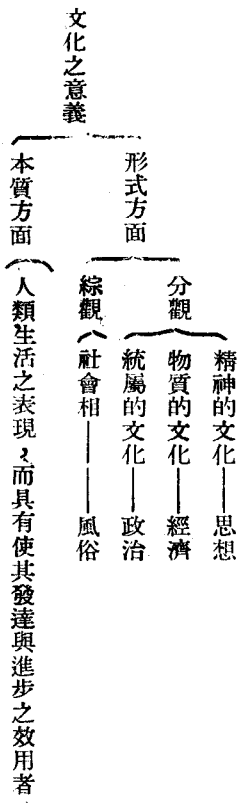 文化之意義
形式方面
分觀
精神的文化——思想
物質的文化——經濟
統屬的文化——政治
綜觀
社會相———風俗
本質方面
人類生活之表現，而具有使其發達與進步之效用者